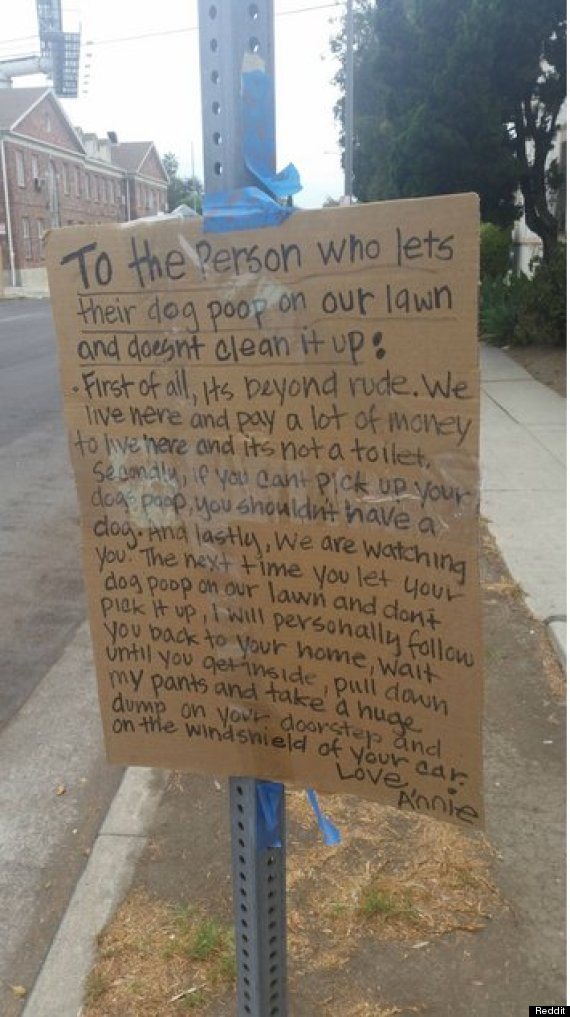 To the Person who lets
their dog poop on our lawn
and doesnt clean it up:
• First of all, Its beyond rude. We
live here and pay a lot of money
to live here and its not a toilet.
Secondly, if you cant pick up your
dogs poop, you shouldnt have a
dog. And lastly, We are watching
you. The next time you let your
dog poop on our lawn and dont
pick it up, I will personally follow
you back to your home, wait
until you get inside, pull down
my pants and take a huge
dump on your doorstep and
on the windshield of your car.
Love,
Annie
Reddit